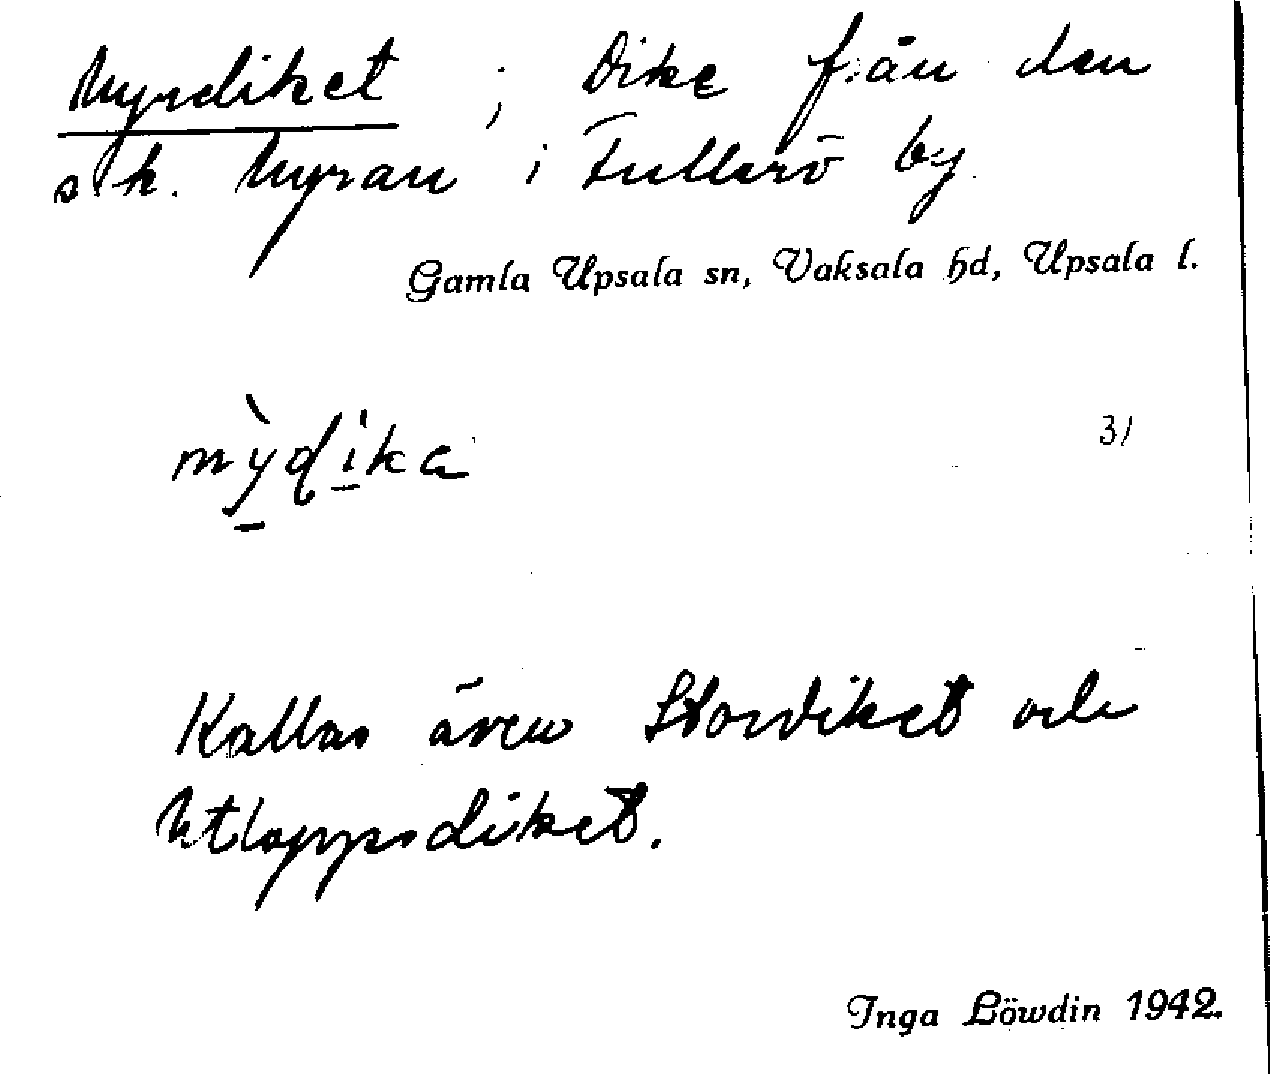 Myrdiket ; Dike från den
s k. Myran i Fullerö by.
Gamla Upsala sn, Vaksala hd, Upsala l.
mỳḍi̍ka
31
Kallas även Stordiket och
Utloppsdiket.
Inga Löwdin 1942.